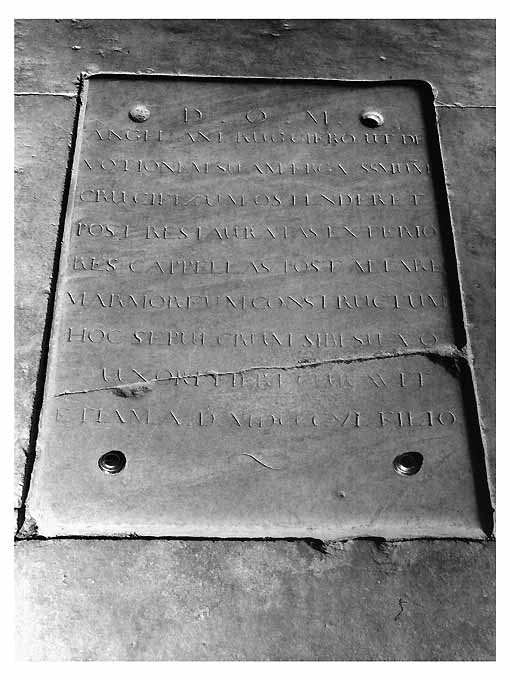 D . O . M .
ANGEL ANT RUGGIERO UT DE
VOTIONEM SUAM ERGA SSMUM
CRUCIFIZUM OSTENDERET
POST RESTAURATAS EXTERIO
RES CAPPELLAS POST ALTARE
MARMOREUM CONSTRUCTUM
HOC SEPULCRUM SIBI SUÆ Q
UXORI FIERI CURAVIT
ETIAM A. D. FILIO